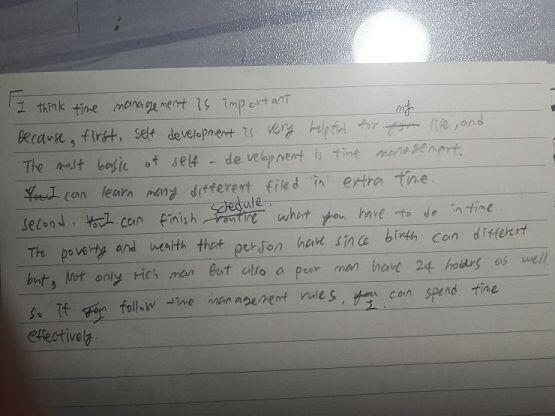 I think time management is important
Because, first, self development is very helpful for my life, and
The most basic of self-development is time management.
I can learn many different filed in extra time.
second. I can finish schedule what you have to do in time
The poverty and wealth that person have since birth can different
but, Not only rich man But also a poor man have 24 hours as well
so if I follow time management rules, I can spend time
effectively.